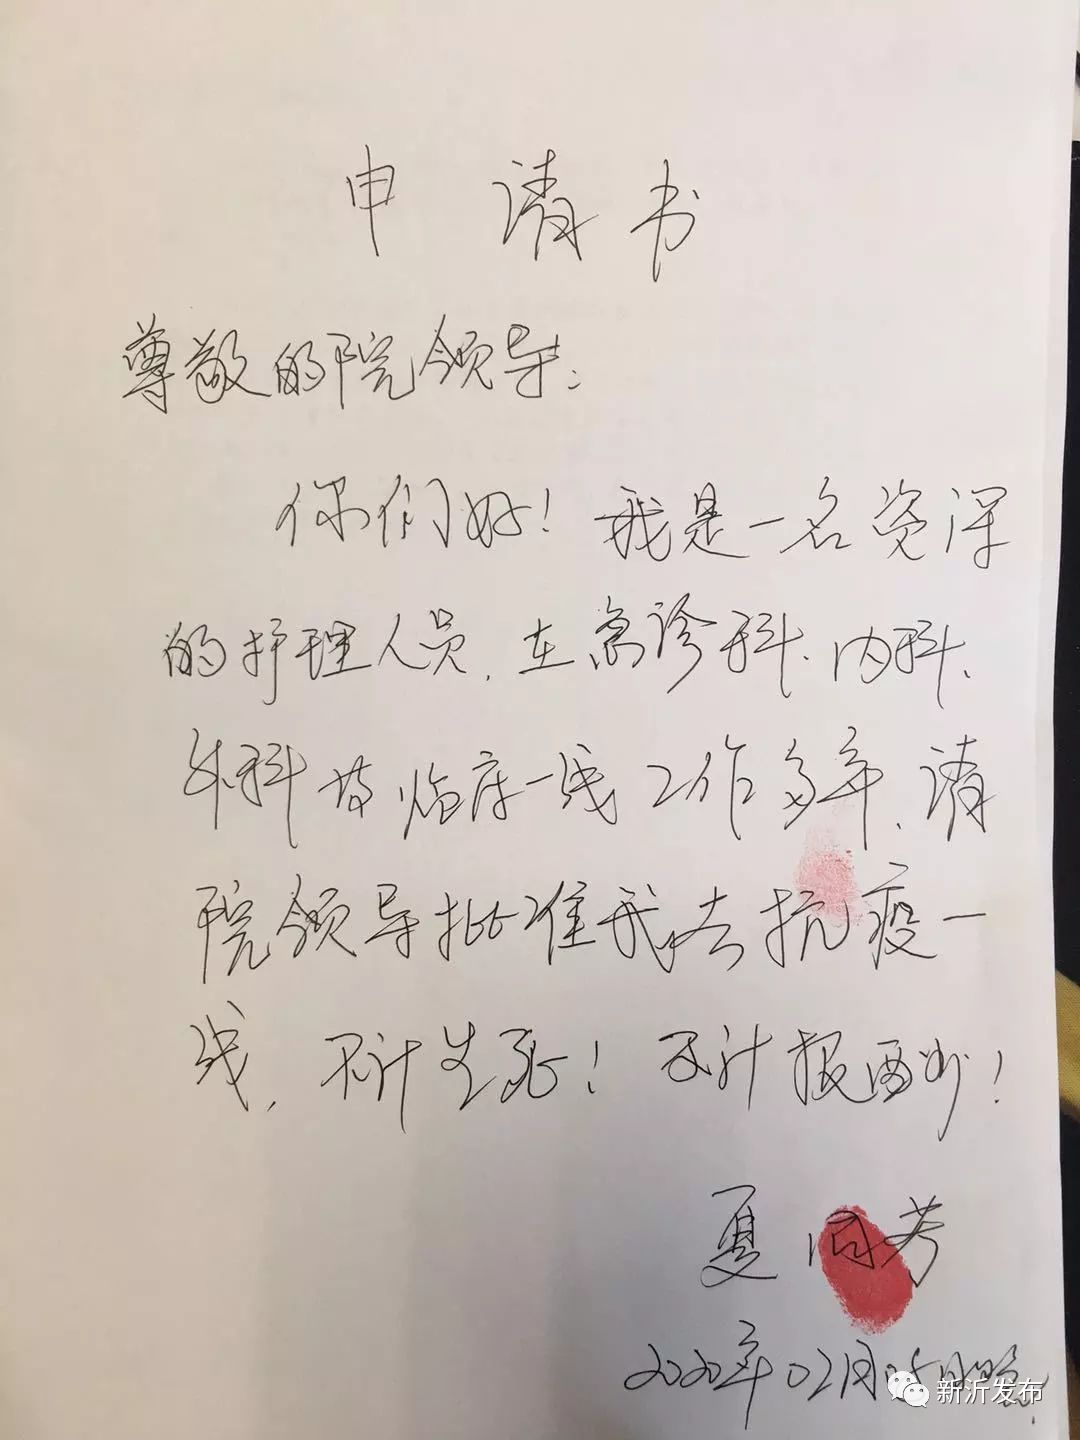 申请书
尊敬的院领导:
你们好!我是一名资深
的护理人员,在急诊科、内科、
外科等临床一线工作多年、请
院领导批准我去抗疫一
线,不计生死!不计报酬!
夏 芳
2020年02月05日晚
新沂发布